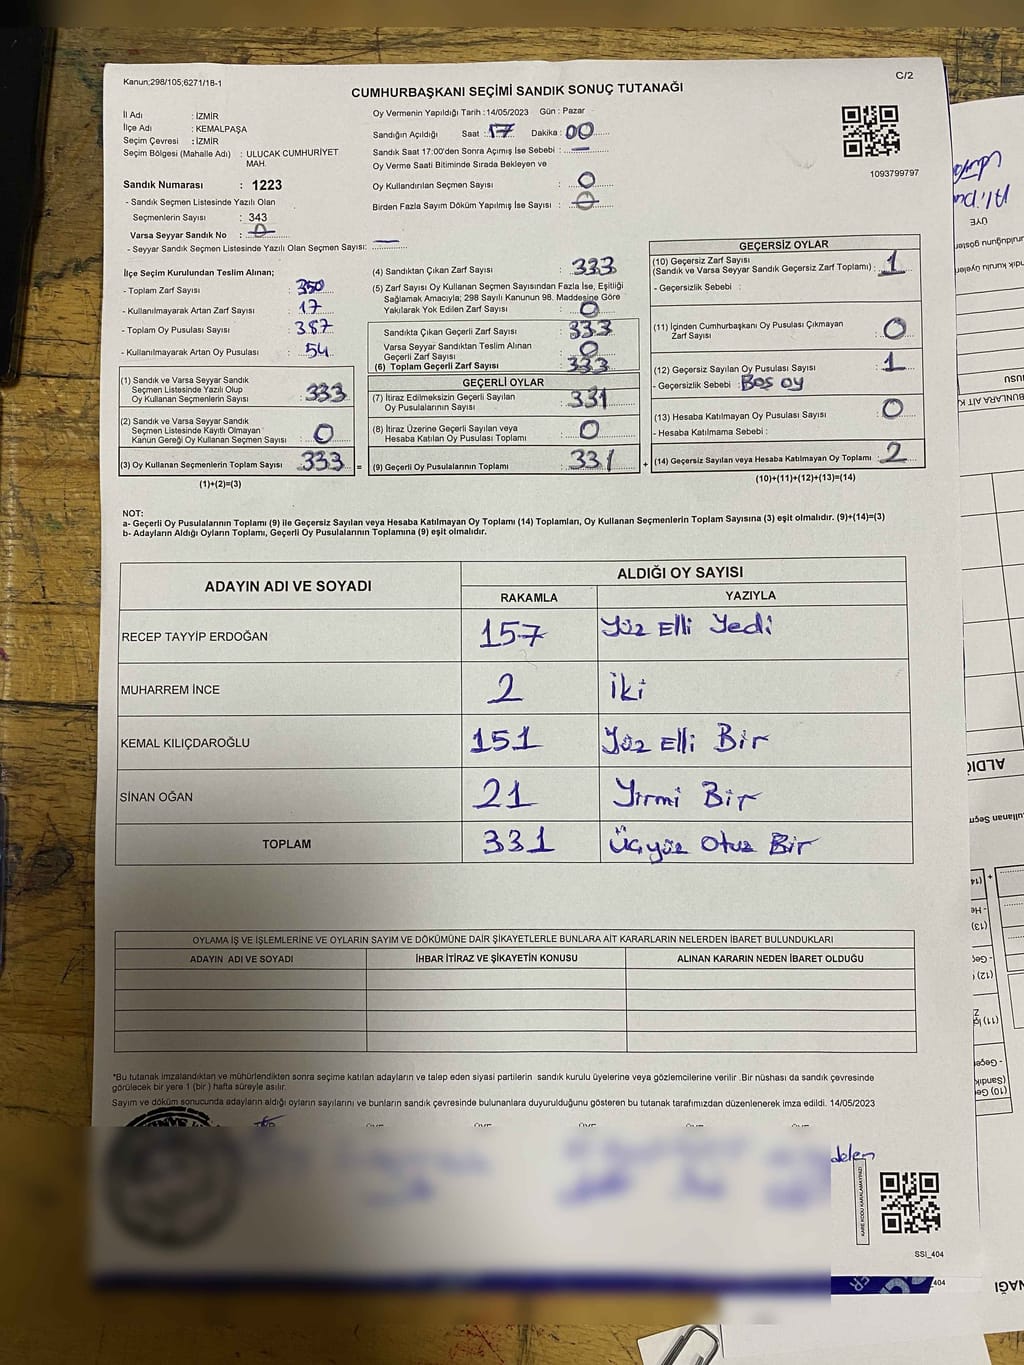 Kanun;298/105;6271/18-1
C/2
CUMHURBAŞKANI SEÇİMİ SANDIK SONUÇ TUTANAĞI
İl Adı : İZMİR
İlçe Adı : KEMALPAŞA
Seçim Çevresi : İZMİR
Seçim Bölgesi (Mahalle Adı) : ULUCAK CUMHURİYET
MAH.
Sandık Numarası : 1223
- Sandık Seçmen Listesinde Yazılı Olan
Seçmenlerin Sayısı : 343
Varsa Seyyar Sandık No : 0
- Seyyar Sandık Seçmen Listesinde Yazılı Olan Seçmen Sayısı: —
Oy Vermenin Yapıldığı Tarih : 14/05/2023 Gün : Pazar
Sandığın Açıldığı Saat : 17 Dakika : 00
Sandık Saat 17:00'den Sonra Açımış İse Sebebi : —
Oy Verme Saati Bitiminde Sırada Bekleyen ve
Oy Kullandırılan Seçmen Sayısı : 0
Birden Fazla Sayım Döküm Yapılmış İse Sayısı : 0
1093799797
İlçe Seçim Kurulundan Teslim Alınan;
- Toplam Zarf Sayısı : 350
- Kullanılmayarak Artan Zarf Sayısı : 17
- Toplam Oy Pusulası Sayısı : 387
- Kullanılmayarak Artan Oy Pusulası : 54
(1) Sandık ve Varsa Seyyar Sandık
Seçmen Listesinde Yazılı Olup
Oy Kullanan Seçmenlerin Sayısı : 333
(2) Sandık ve Varsa Seyyar Sandık
Seçmen Listesinde Kayıtlı Olmayan
Kanun Gereği Oy Kullanan Seçmen Sayısı : 0
(3) Oy Kullanan Seçmenlerin Toplam Sayısı : 333 =
(1)+(2)=(3)
(4) Sandıktan Çıkan Zarf Sayısı : 333
(5) Zarf Sayısı Oy Kullanan Seçmen Sayısından Fazla İse, Eşitliği
Sağlamak Amacıyla; 298 Sayılı Kanunun 98. Maddesine Göre
Yakılarak Yok Edilen Zarf Sayısı : 0
Sandıkta Çıkan Geçerli Zarf Sayısı : 333
Varsa Seyyar Sandıktan Teslim Alınan
Geçerli Zarf Sayısı : 0
(6) Toplam Geçerli Zarf Sayısı : 333
GEÇERLİ OYLAR
(7) İtiraz Edilmeksizin Geçerli Sayılan
Oy Pusulalarının Sayısı : 331
(8) İtiraz Üzerine Geçerli Sayılan veya
Hesaba Katılan Oy Pusulası Toplamı : 0
(9) Geçerli Oy Pusulalarının Toplamı : 331 +
GEÇERSİZ OYLAR
(10) Geçersiz Zarf Sayısı
(Sandık ve Varsa Seyyar Sandık Geçersiz Zarf Toplamı) : 1
- Geçersizlik Sebebi :
(11) İçinden Cumhurbaşkanı Oy Pusulası Çıkmayan
Zarf Sayısı : 0
(12) Geçersiz Sayılan Oy Pusulası Sayısı : 1
- Geçersizlik Sebebi : Boş oy
(13) Hesaba Katılmayan Oy Pusulası Sayısı : 0
- Hesaba Katılmama Sebebi :
(14) Geçersiz Sayılan veya Hesaba Katılmayan Oy Toplamı : 2
(10)+(11)+(12)+(13)=(14)
NOT:
a- Geçerli Oy Pusulalarının Toplamı (9) ile Geçersiz Sayılan veya Hesaba Katılmayan Oy Toplamı (14) Toplamları, Oy Kullanan Seçmenlerin Toplam Sayısına (3) eşit olmalıdır. (9)+(14)=(3)
b- Adayların Aldığı Oyların Toplamı, Geçerli Oy Pusulalarının Toplamına (9) eşit olmalıdır.
ADAYIN ADI VE SOYADI ALDIĞI OY SAYISI
RAKAMLA YAZIYLA
RECEP TAYYİP ERDOĞAN 157 Yüz Elli Yedi
MUHARREM İNCE 2 İki
KEMAL KILIÇDAROĞLU 151 Yüz Elli Bir
SİNAN OĞAN 21 Yirmi Bir
TOPLAM 331 Üçyüz Otuz Bir
OYLAMA İŞ VE İŞLEMLERİNE VE OYLARIN SAYIM VE DÖKÜMÜNE DAİR ŞİKAYETLERLE BUNLARA AİT KARARLARIN NELERDEN İBARET BULUNDUKLARI
ADAYIN ADI VE SOYADI İHBAR İTİRAZ VE ŞİKAYETİN KONUSU ALINAN KARARIN NEDEN İBARET OLDUĞU
*Bu tutanak imzalandıktan ve mühürlendikten sonra seçime katılan adayların ve talep eden siyasi partilerin sandık kurulu üyelerine veya gözlemcilerine verilir .Bir nüshası da sandık çevresinde
görülecek bir yere 1 (bir ) hafta süreyle asılır.
Sayım ve döküm sonucunda adayların aldığı oyların sayılarını ve bunların sandık çevresinde bulunanlara duyurulduğunu gösteren bu tutanak tarafımızdan düzenlenerek imza edildi. 14/05/2023
KARE KODU KARALAMAYINIZ!
SSİ_404